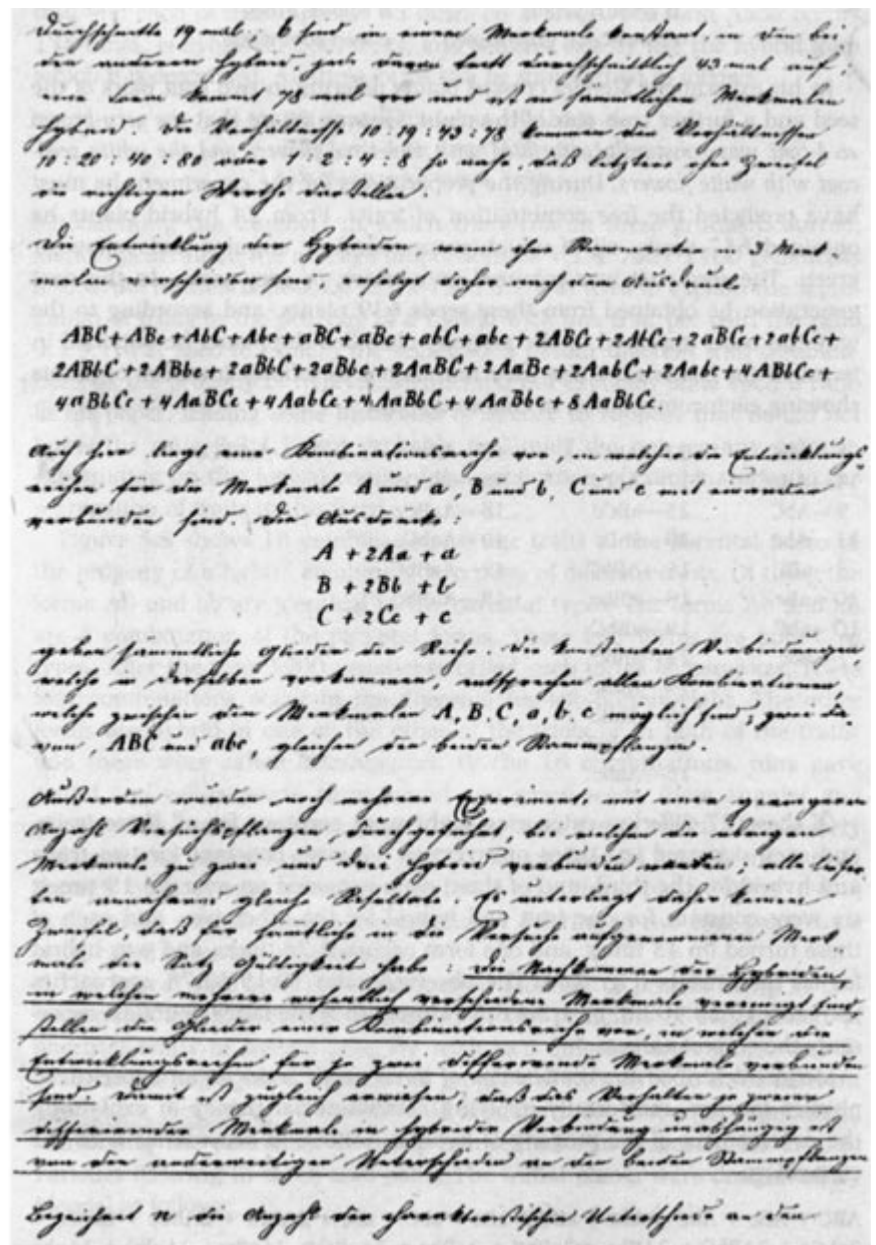 Durchschnitte 19 mal. 6 sind in einem Merkmale constant, in den bei-
den anderen hybrid, jede davon tritt durchschnittlich 43 mal auf
eine Form kommt 78 mal vor und ist in sämmtlichen Merkmalen
hybrid. Die Verhältnisse 10:19:43:78 kommen den Verhältnissen
10:20:40:80 oder 1:2:4:8 so nahe, daß letztere ohne Zweifel
die richtigen Werthe darstellen.
Die Entwicklung der Hybriden, wenn ihre Stammarten in 3 Merk-
malen verschieden sind, erfolgt daher nach dem Ausdruck:
ABC + ABc + AbC + Abc + aBC + aBc + abC + abc + 2ABCc + 2AbCc + 2aBCc + 2abCc +
2ABbC + 2ABbc + 2aBbC + 2aBbc + 2AaBC + 2AaBc + 2AabC + 2Aabc + 4ABbCc +
4aBbCc + 4AaBCc + 4AabCc + 4AaBbC + 4AaBbc + 8AaBbCc.
Auch hier liegt eine Kombinationsreihe vor, in welcher die Entwicklungs-
reihen für die Merkmale A und a, B und b, C und c mit einander
verbunden sind. Die Ausdrücke:
A + 2Aa + a
B + 2Bb + b
C + 2Cc + c
geben sämmtliche Glieder der Reihe. Die constanten Verbindungen
welche in derselben vorkommen, entsprechen allen Kombinationen,
welche zwischen den Merkmalen A, B, C, a, b, c möglich sind; zwei da-
von, ABC und abc, gleichen den beiden Stammpflanzen.
Außerdem wurden noch mehrere Experimente mit einer geringeren
Anzahl Versuchspflanzen durchgeführt, bei welchen die übrigen
Merkmale zu zwei und drei hybrid verbunden waren; alle liefer-
ten annähernd gleiche Resultate. Es unterliegt daher keinem
Zweifel, daß für sämtliche in die Versuche aufgenommenen Merk-
male der Satz Gültigkeit habe: Die Nachkommen der Hybriden,
in welchen mehrere wesentlich verschiedene Merkmale vereinigt sind,
stellen die Glieder einer Kombinationsreihe vor, in welchen die
Entwicklungsreihen für je zwei differirende Merkmale verbunden
sind. Damit ist zugleich erwiesen, daß das Verhalten je zweier
differirender Merkmale in hybrider Verbindung unabhängig ist
von den anderweitigen Unterschieden an den beiden Stammpflanzen
Bezeichnet n die Anzahl der charakteristischen Unterschiede an den